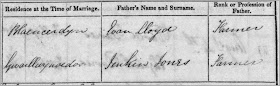 Residence at the Time of Marriage. Father's Name and Surname. Rank or Profession of Father.
Maencerdyn Evan Lloyd Farmer
Jenkin Jones Farmer